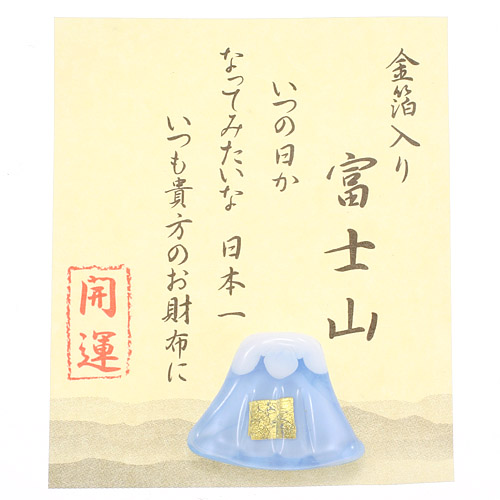 金箔入り
富士山
いつの日か
なってみたいな 日本一
いつも貴方のお財布に
開運